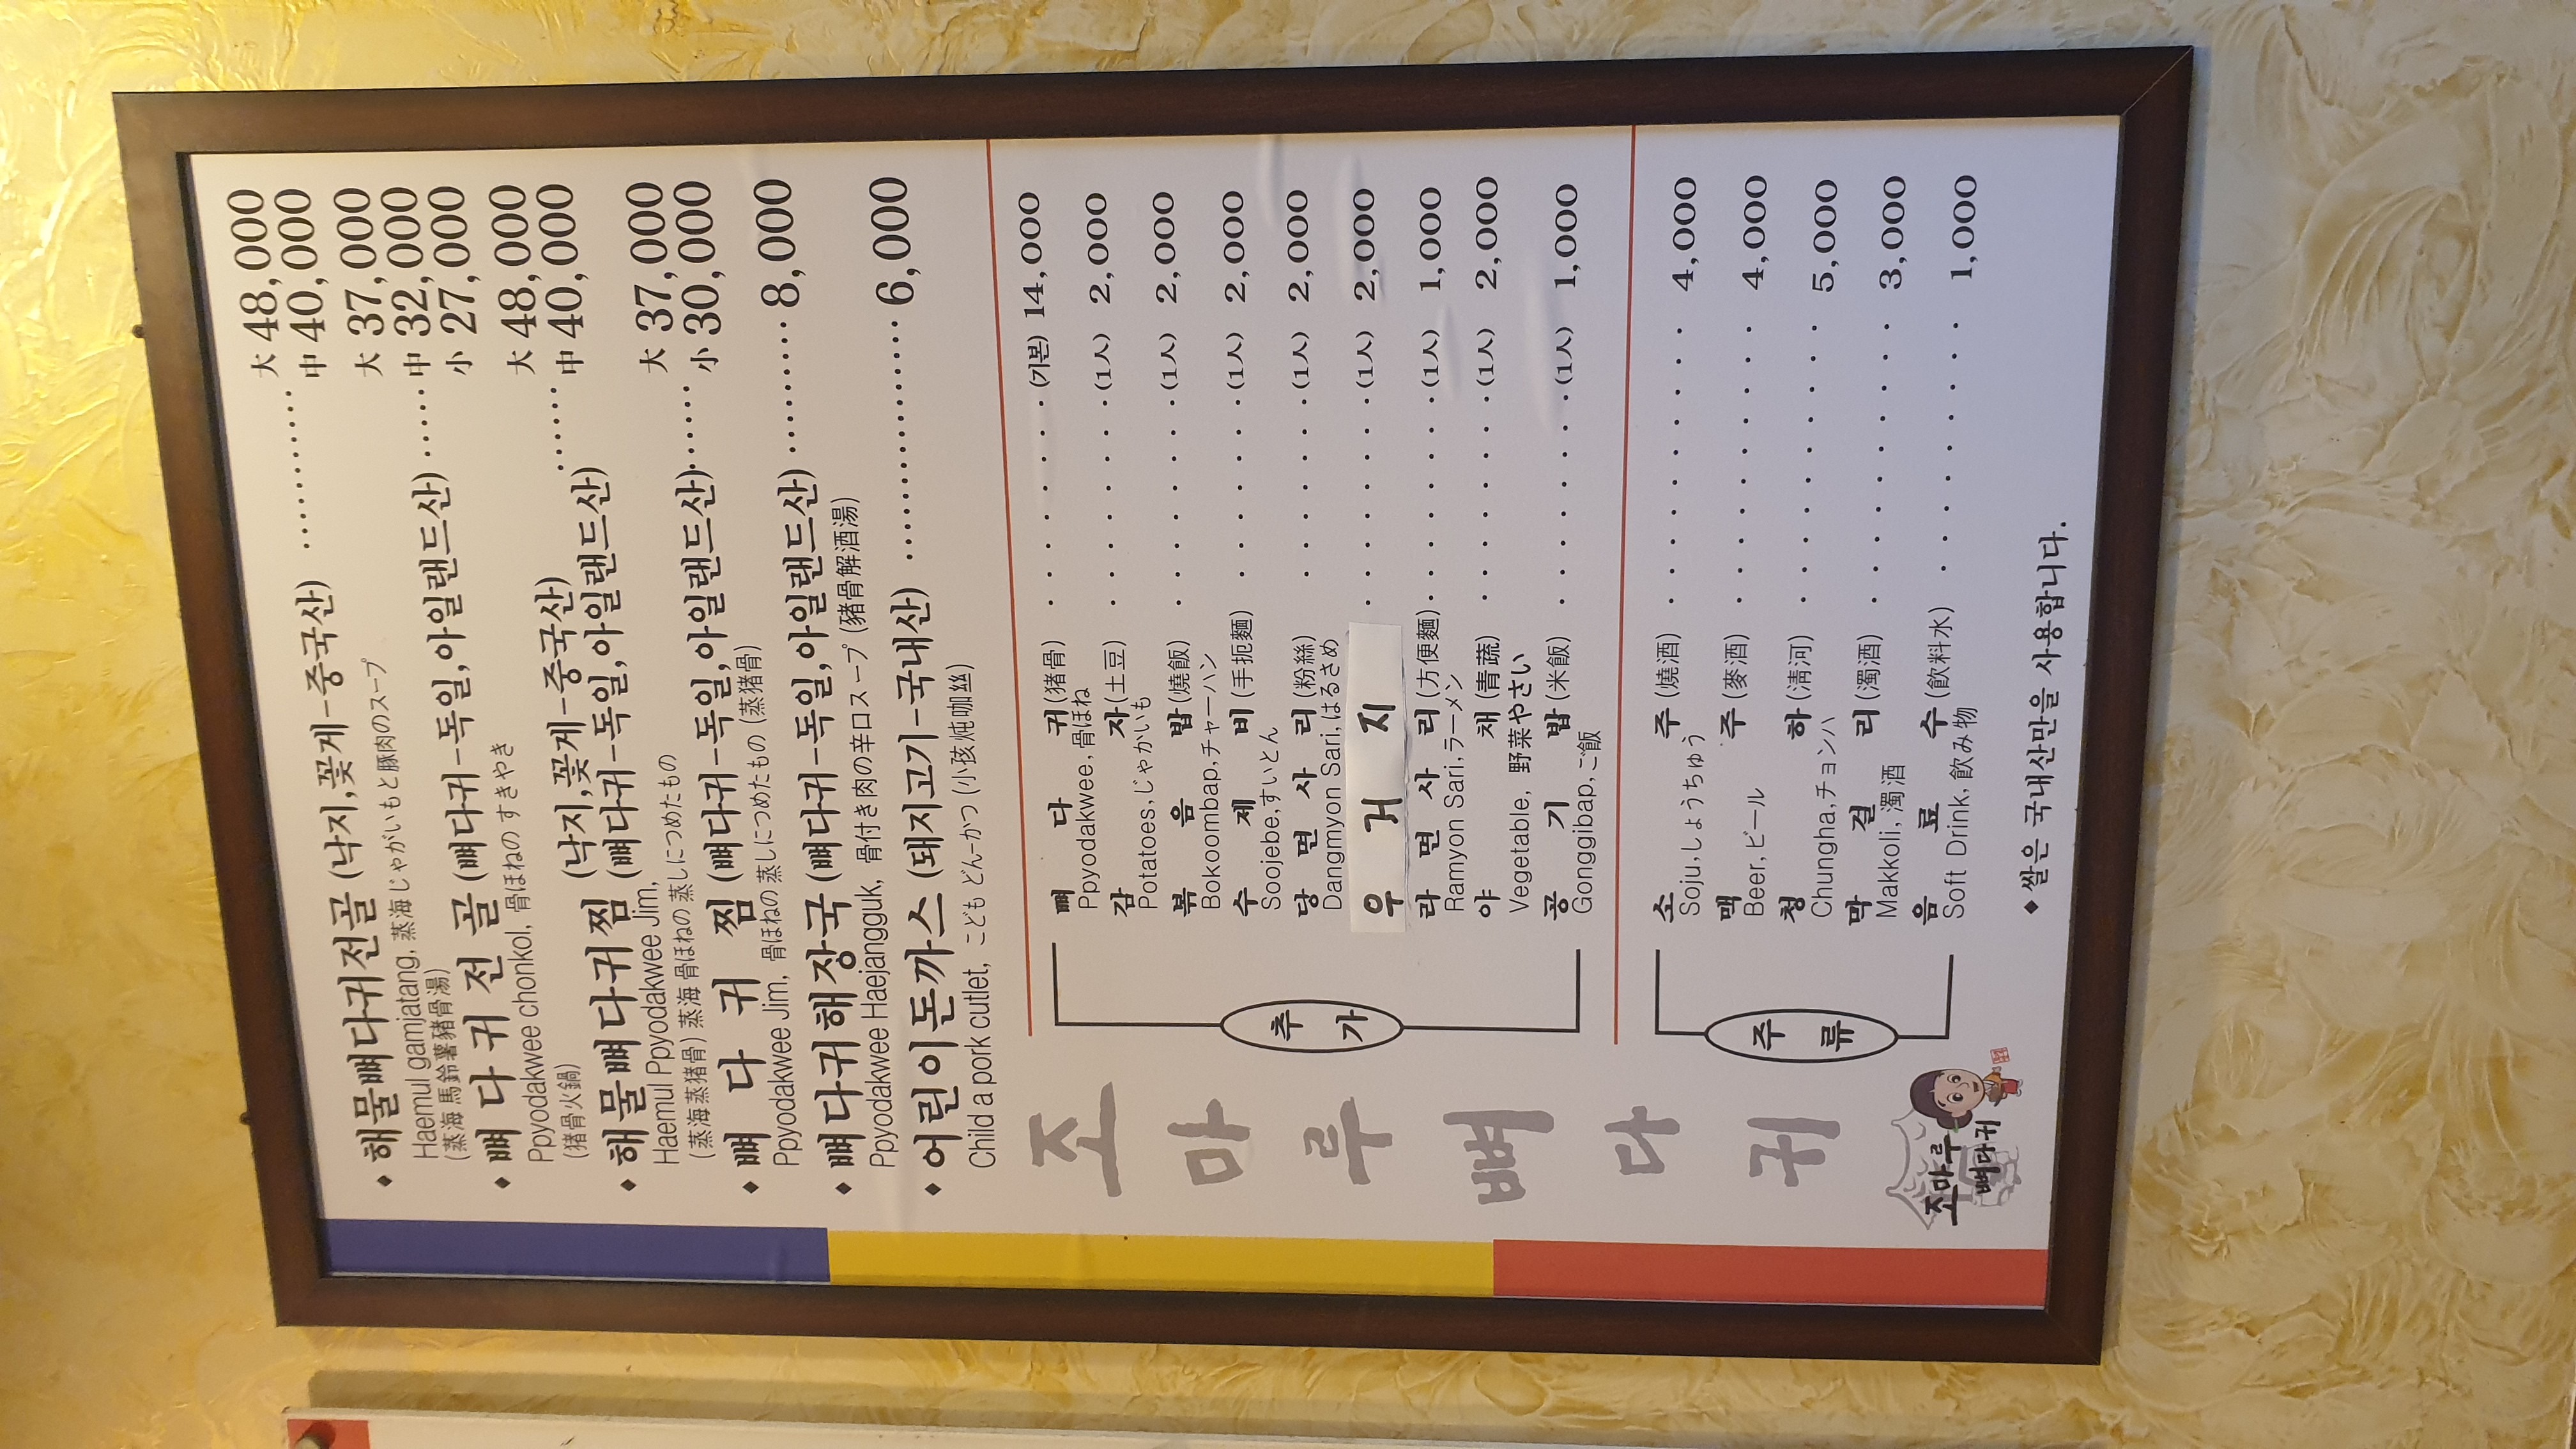 ◆ 해물뼈다귀전골 (낙지,꽃게-중국산) ············ 大 48,000
中 40,000
Haemul gamjatang, 蒸海じゃがいもと豚肉のスープ
(蒸海馬鈴薯豬骨湯)
大 37,000
◆ 뼈다귀전골 (뼈다귀-독일,아일랜드산) ······ 中 32,000
小 27,000
Ppyodakwee chonkol, 骨ほねの すきやき
(猪骨火鍋)
◆ 해물뼈다귀찜 (낙지,꽃게-중국산) 大 48,000
(뼈다귀-독일,아일랜드산) ······· 中 40,000
Haemul Ppyodakwee Jim,
(蒸海蒸猪骨) 蒸海骨ほねの蒸しにつめたもの
◆ 뼈다귀찜 (뼈다귀-독일,아일랜드산) ······· 大 37,000
小 30,000
Ppyodakwee Jim, 骨ほねの蒸しにつめたもの (蒸猪骨)
◆ 뼈다귀해장국 (뼈다귀-독일,아일랜드산) ·········· 8,000
Ppyodakwee Haejangguk, 骨付き肉の辛口スープ (豬骨解酒湯)
◆ 어린이돈까스 (돼지고기-국내산) ·················· 6,000
Child a pork cutlet, こども どんーかつ (小孩炖咖丝)
추가
뼈다귀 (猪骨) · · · · · · · · (기본) 14,000
Ppyodakwee, 骨ほね
감자 (土豆) · · · · · · · · (1人) 2,000
Potatoes, じゃかいも
볶음밥 (燒飯) · · · · · · · · (1人) 2,000
Bokoombap, チャーハン
수제비 (手扼麵) · · · · · · · · (1人) 2,000
Soojebe, すいとん
당면사리 (粉絲) · · · · · · · · (1人) 2,000
Dangmyon Sari, はるさめ
우거지 · · · · · · · · (1人) 2,000
라면사리 (方便麵) · · · · · · · · (1人) 1,000
Ramyon Sari, ラーメン
야채 (青蔬) · · · · · · · · (1人) 2,000
Vegetable, 野菜やさい
공기밥 (米飯) · · · · · · · · (1人) 1,000
Gonggibap, ご飯
주류
소주 (燒酒) · · · · · · · · · · 4,000
Soju, しょうちゅう
맥주 (麥酒) · · · · · · · · · · 4,000
Beer, ビール
청하 (淸河) · · · · · · · · · · 5,000
Chungha, チョンハ
막걸리 (濁酒) · · · · · · · · · · 3,000
Makkoli, 濁酒
음료수 (飮料水) · · · · · · · · · 1,000
Soft Drink, 飲み物
조마루뼈다귀
조마루
뼈다귀
◆ 쌀은 국내산만을 사용합니다.